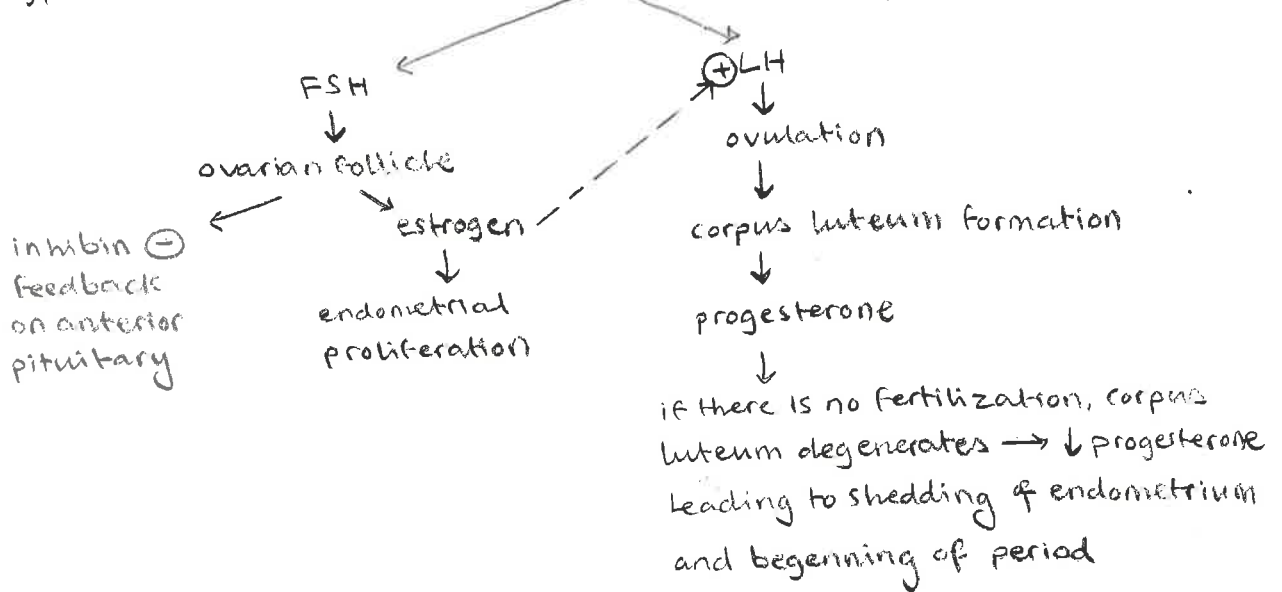 FSH
ovarian follicle
inhibin ⊖
feedback
on anterior
pituitary
estrogen
endometrial
proliferation
⊕LH
ovulation
corpus luteum formation
progesterone
if there is no fertilization, corpus
luteum degenerates → ↓ progesterone
leading to shedding of endometrium
and begenning of period